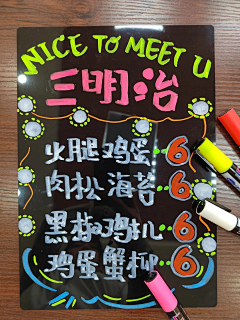 NICE TO MEET U
三明治
火腿鸡蛋 6
肉松海苔 6
黑椒鸡扒 6
鸡蛋蟹柳 6